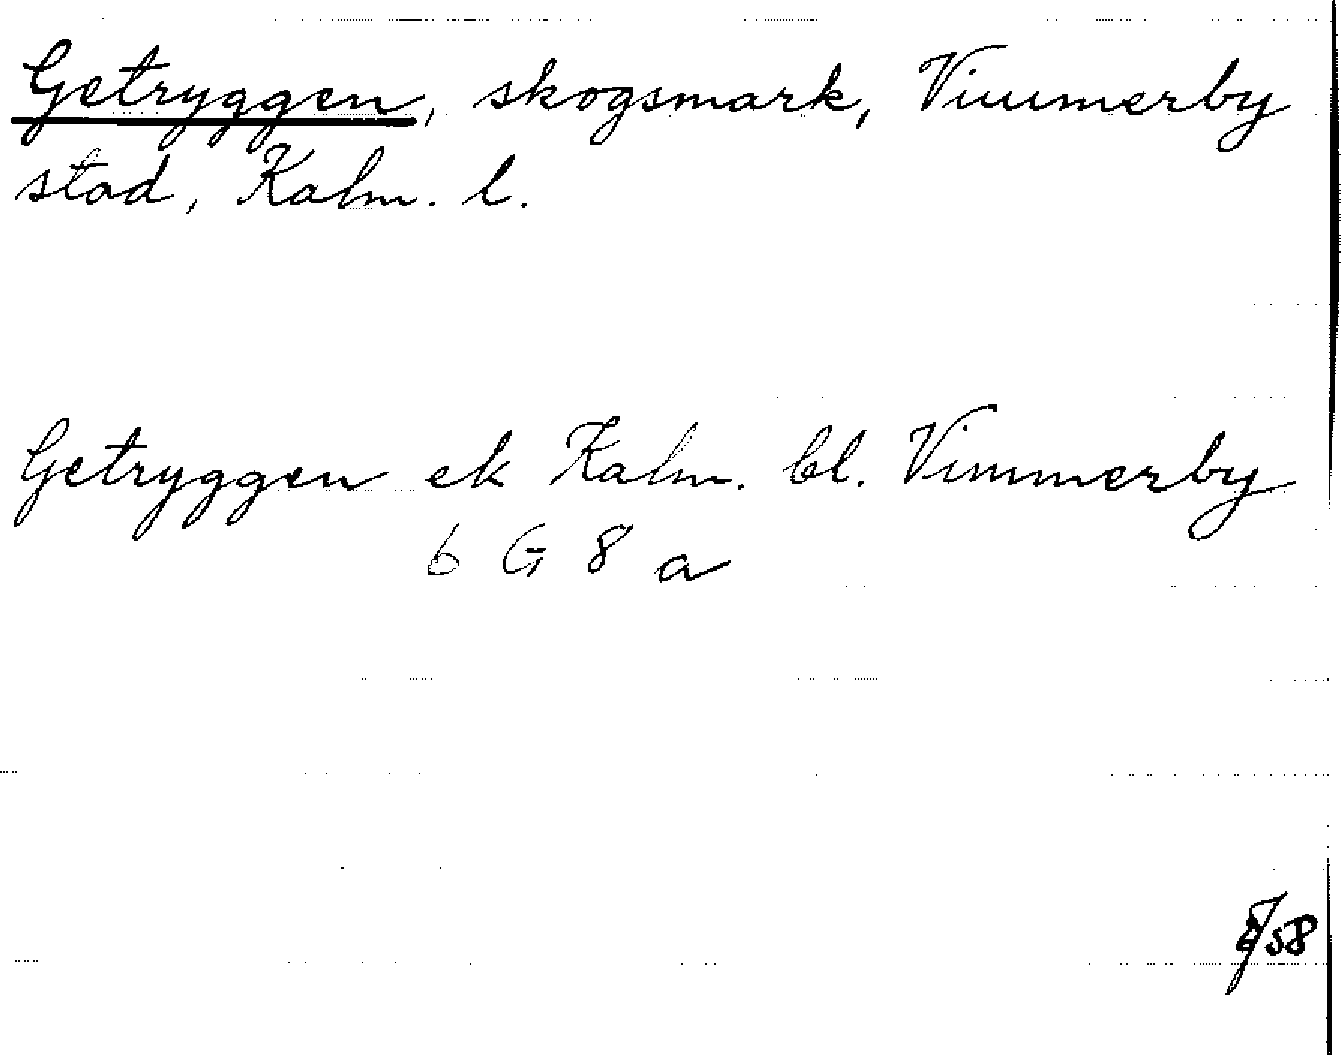 Getryggen, skogsmark, Vimmerby
stad, Kalm. l.
Getryggen ek Kalm. bl. Vimmerby
6 G 8 a